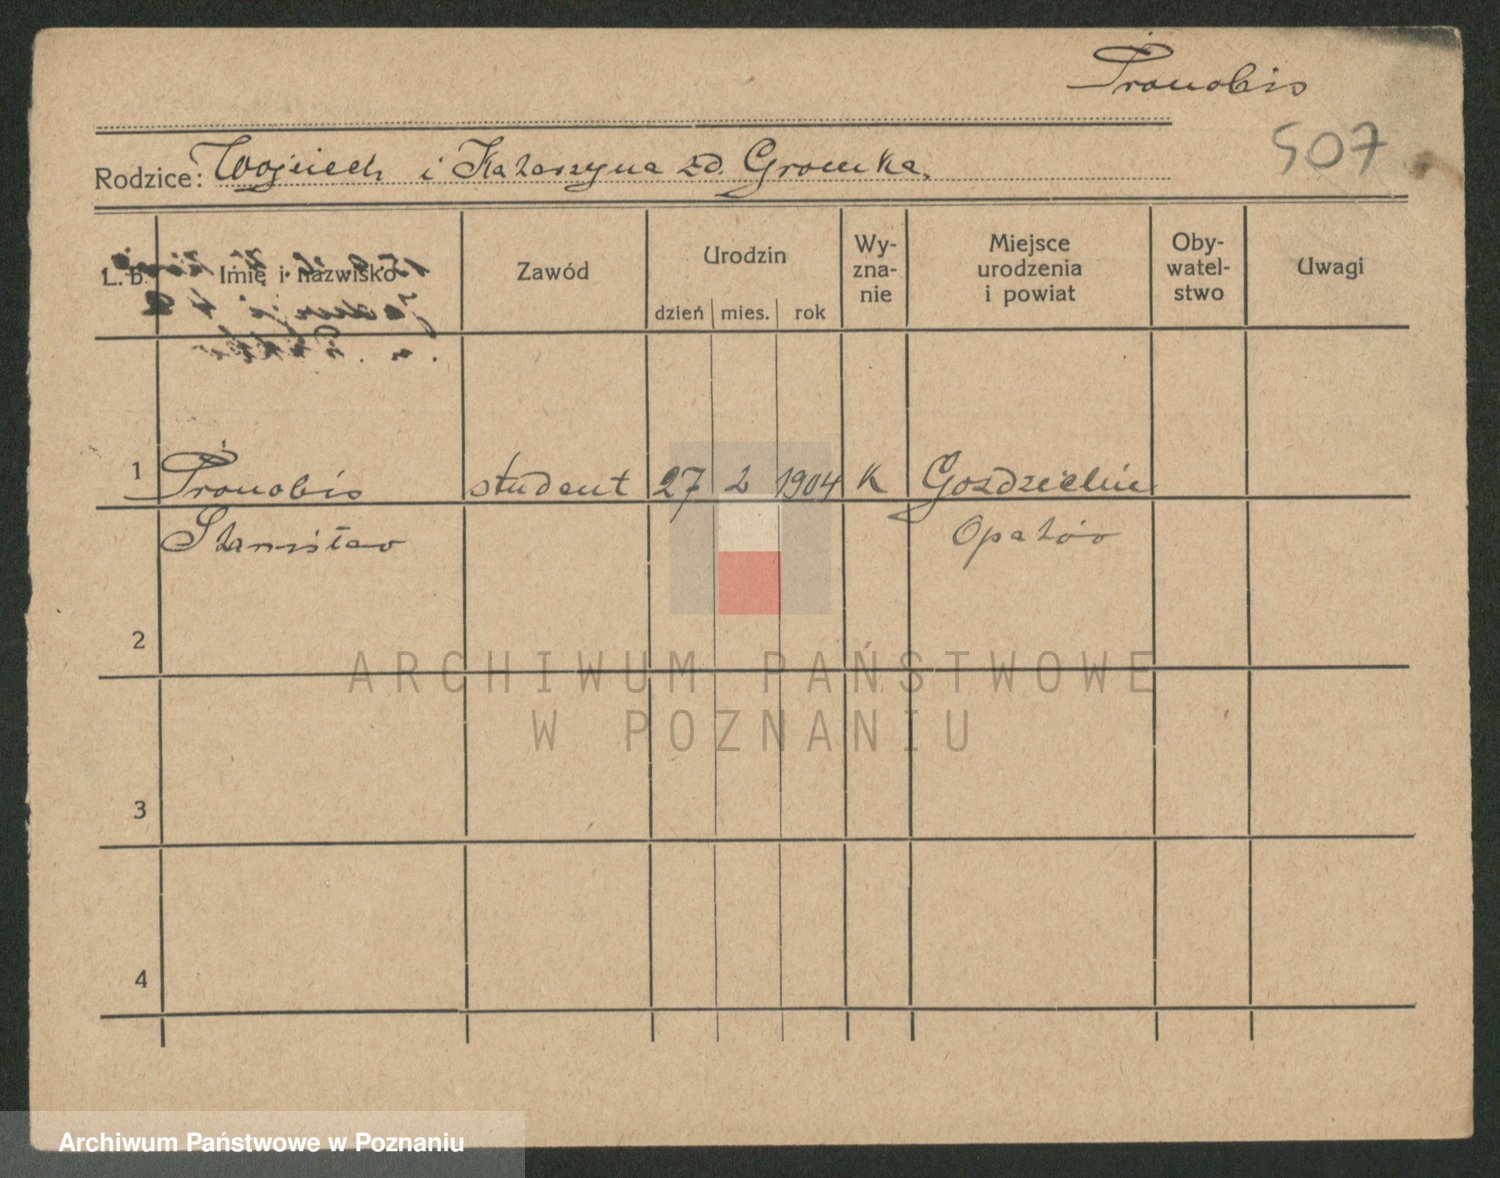 Pronobis
507
Rodzice: Wojciech i Katarzyna zd. Gromka.
L. B. Imię i nazwisko Zawód Urodzin dzień mies. rok Wy-zna-nie Miejsce urodzenia i powiat Oby-watel-stwo Uwagi
1 Pronobis student 27 2 1904 K Gozdzielin
Stanisław Opatów
2
ARCHIWUM PAŃSTWOWE
W POZNANIU
3
4
Archiwum Państwowe w Poznaniu